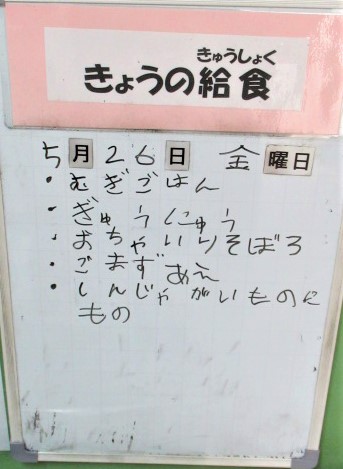 きゅうしょく
きょうの給食
5月26日 金曜日
・むぎごはん
・ぎゅうにゅう
・おちゃいりそぼろ
・ごまずあえ
・しんじゃがいものに
もの